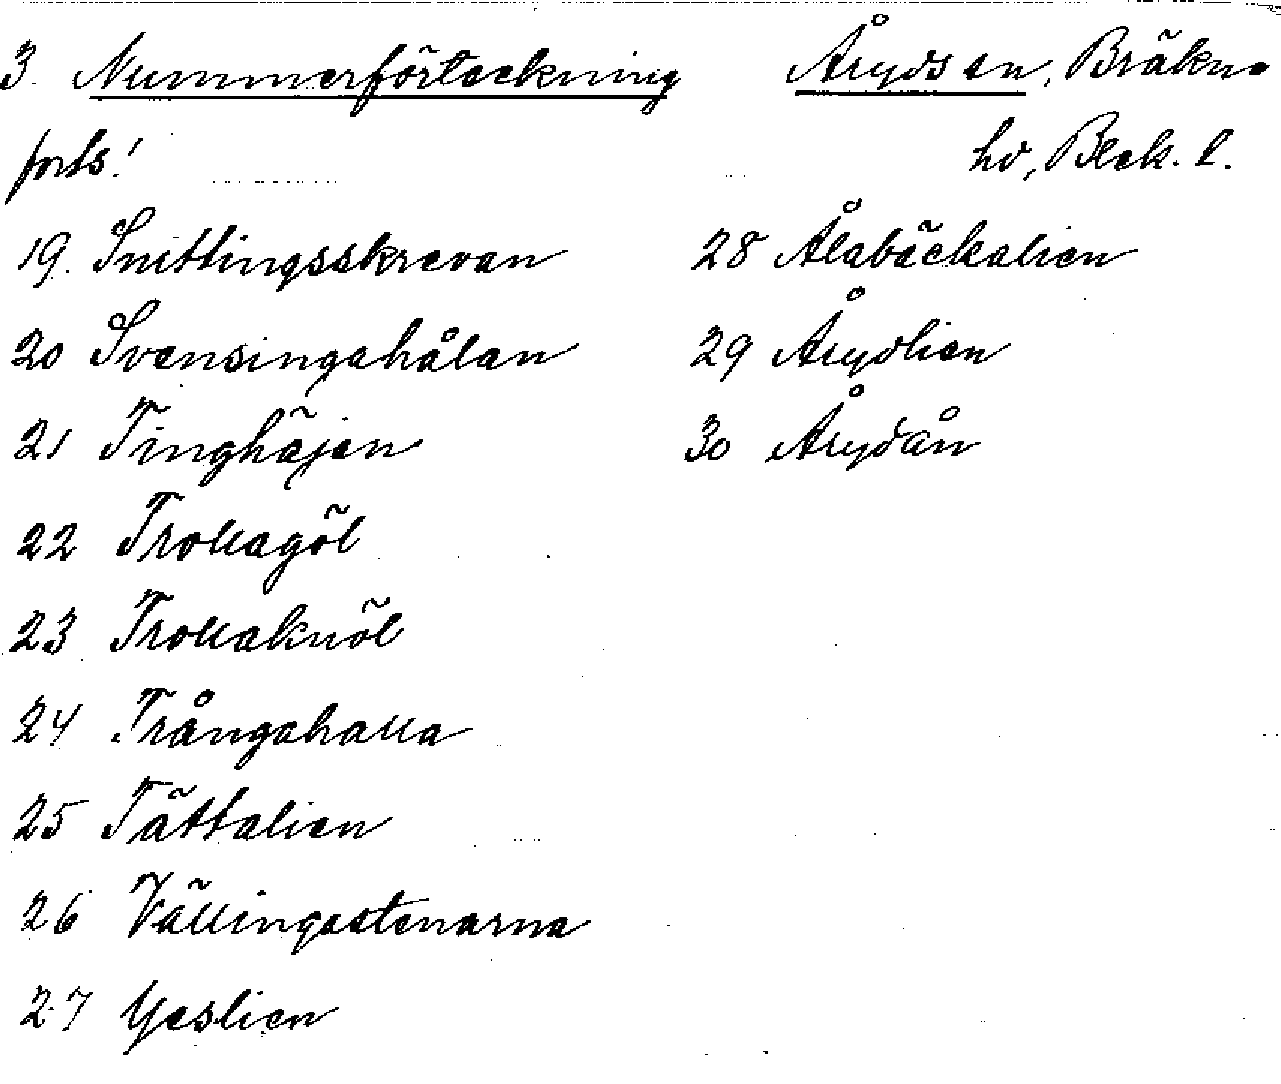 3. Nummerförteckning
forts!
Åryds sn, Bräkne
hd, Blek. l.
19. Snittingsskrevan
20 Svensingahålan
21 Tinghäjen
22 Trollagöl
23 Trollaknöl
24 Trångahalla
25 Tättalien
26 Vällingastenarna
27 Yeslien
28 Ålabäckalien
29 Årydlien
30 Årydån